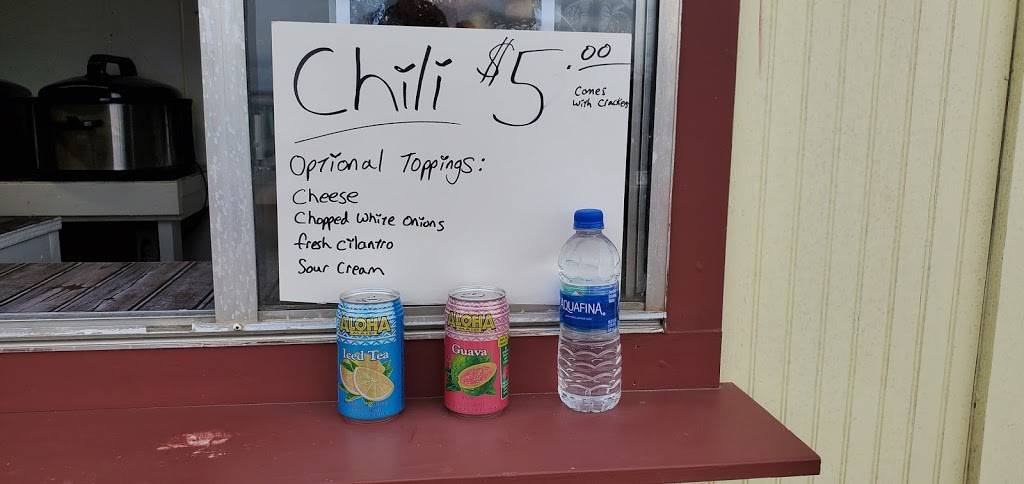 Chili $5.00
Comes
with Crackers
Optional Toppings:
Cheese
Chopped White Onions
fresh Cilantro
Sour Cream
ALOHA
MAID
Iced Tea
ALOHA
MAID
Guava
AQUAFINA